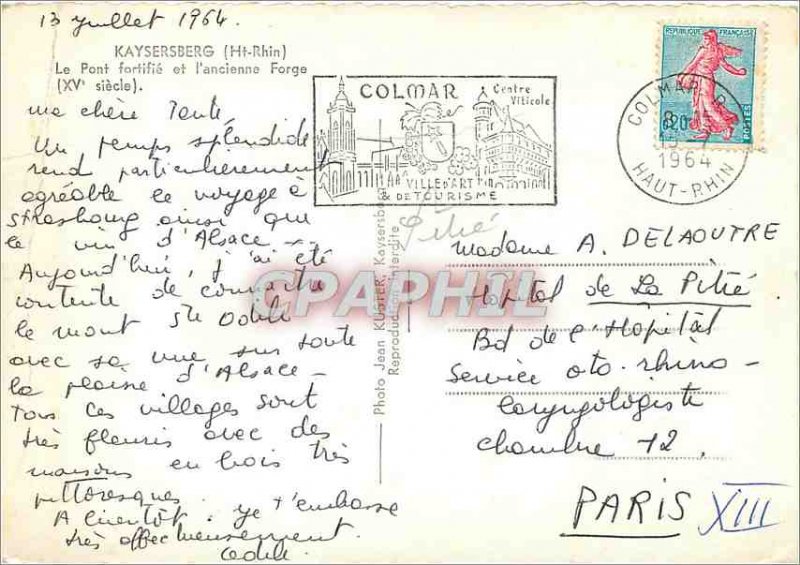 13 juillet 1964.
KAYSERSBERG (Ht-Rhin)
Le Pont fortifié et l'ancienne Forge
(XVe siècle).
ma chère Tante
Un temps splendide
rend particulièrement
agréable le voyage à
Strasbourg ainsi que
le vin d'Alsace -
Aujourd'hui, j'ai été
contente de connaitre
le mont Ste Odile
avec sa vue sur toute
la plaine d'Alsace -
Tous ces villages sont
très fleuris avec des
maisons en bois très
pittoresques.
A bientôt. je t'embrasse
très affectueusement.
Odile.
Photo Jean KUSTER, Kaysersberg
Reproduction interdite
COLMAR
Centre
Viticole
VILLE D'ART
& DE TOURISME
REPUBLIQUE FRANÇAISE
0,20
POSTES
COLMAR R.P.
1964
HAUT-RHIN
Pitié
Madame A. DELAOUTRE
Hôpital de La Pitié
Bd de l'Hôpital
Service oto-rhino-
laryngologiste
chambre 12.
PARIS XIII
CPAPHIL